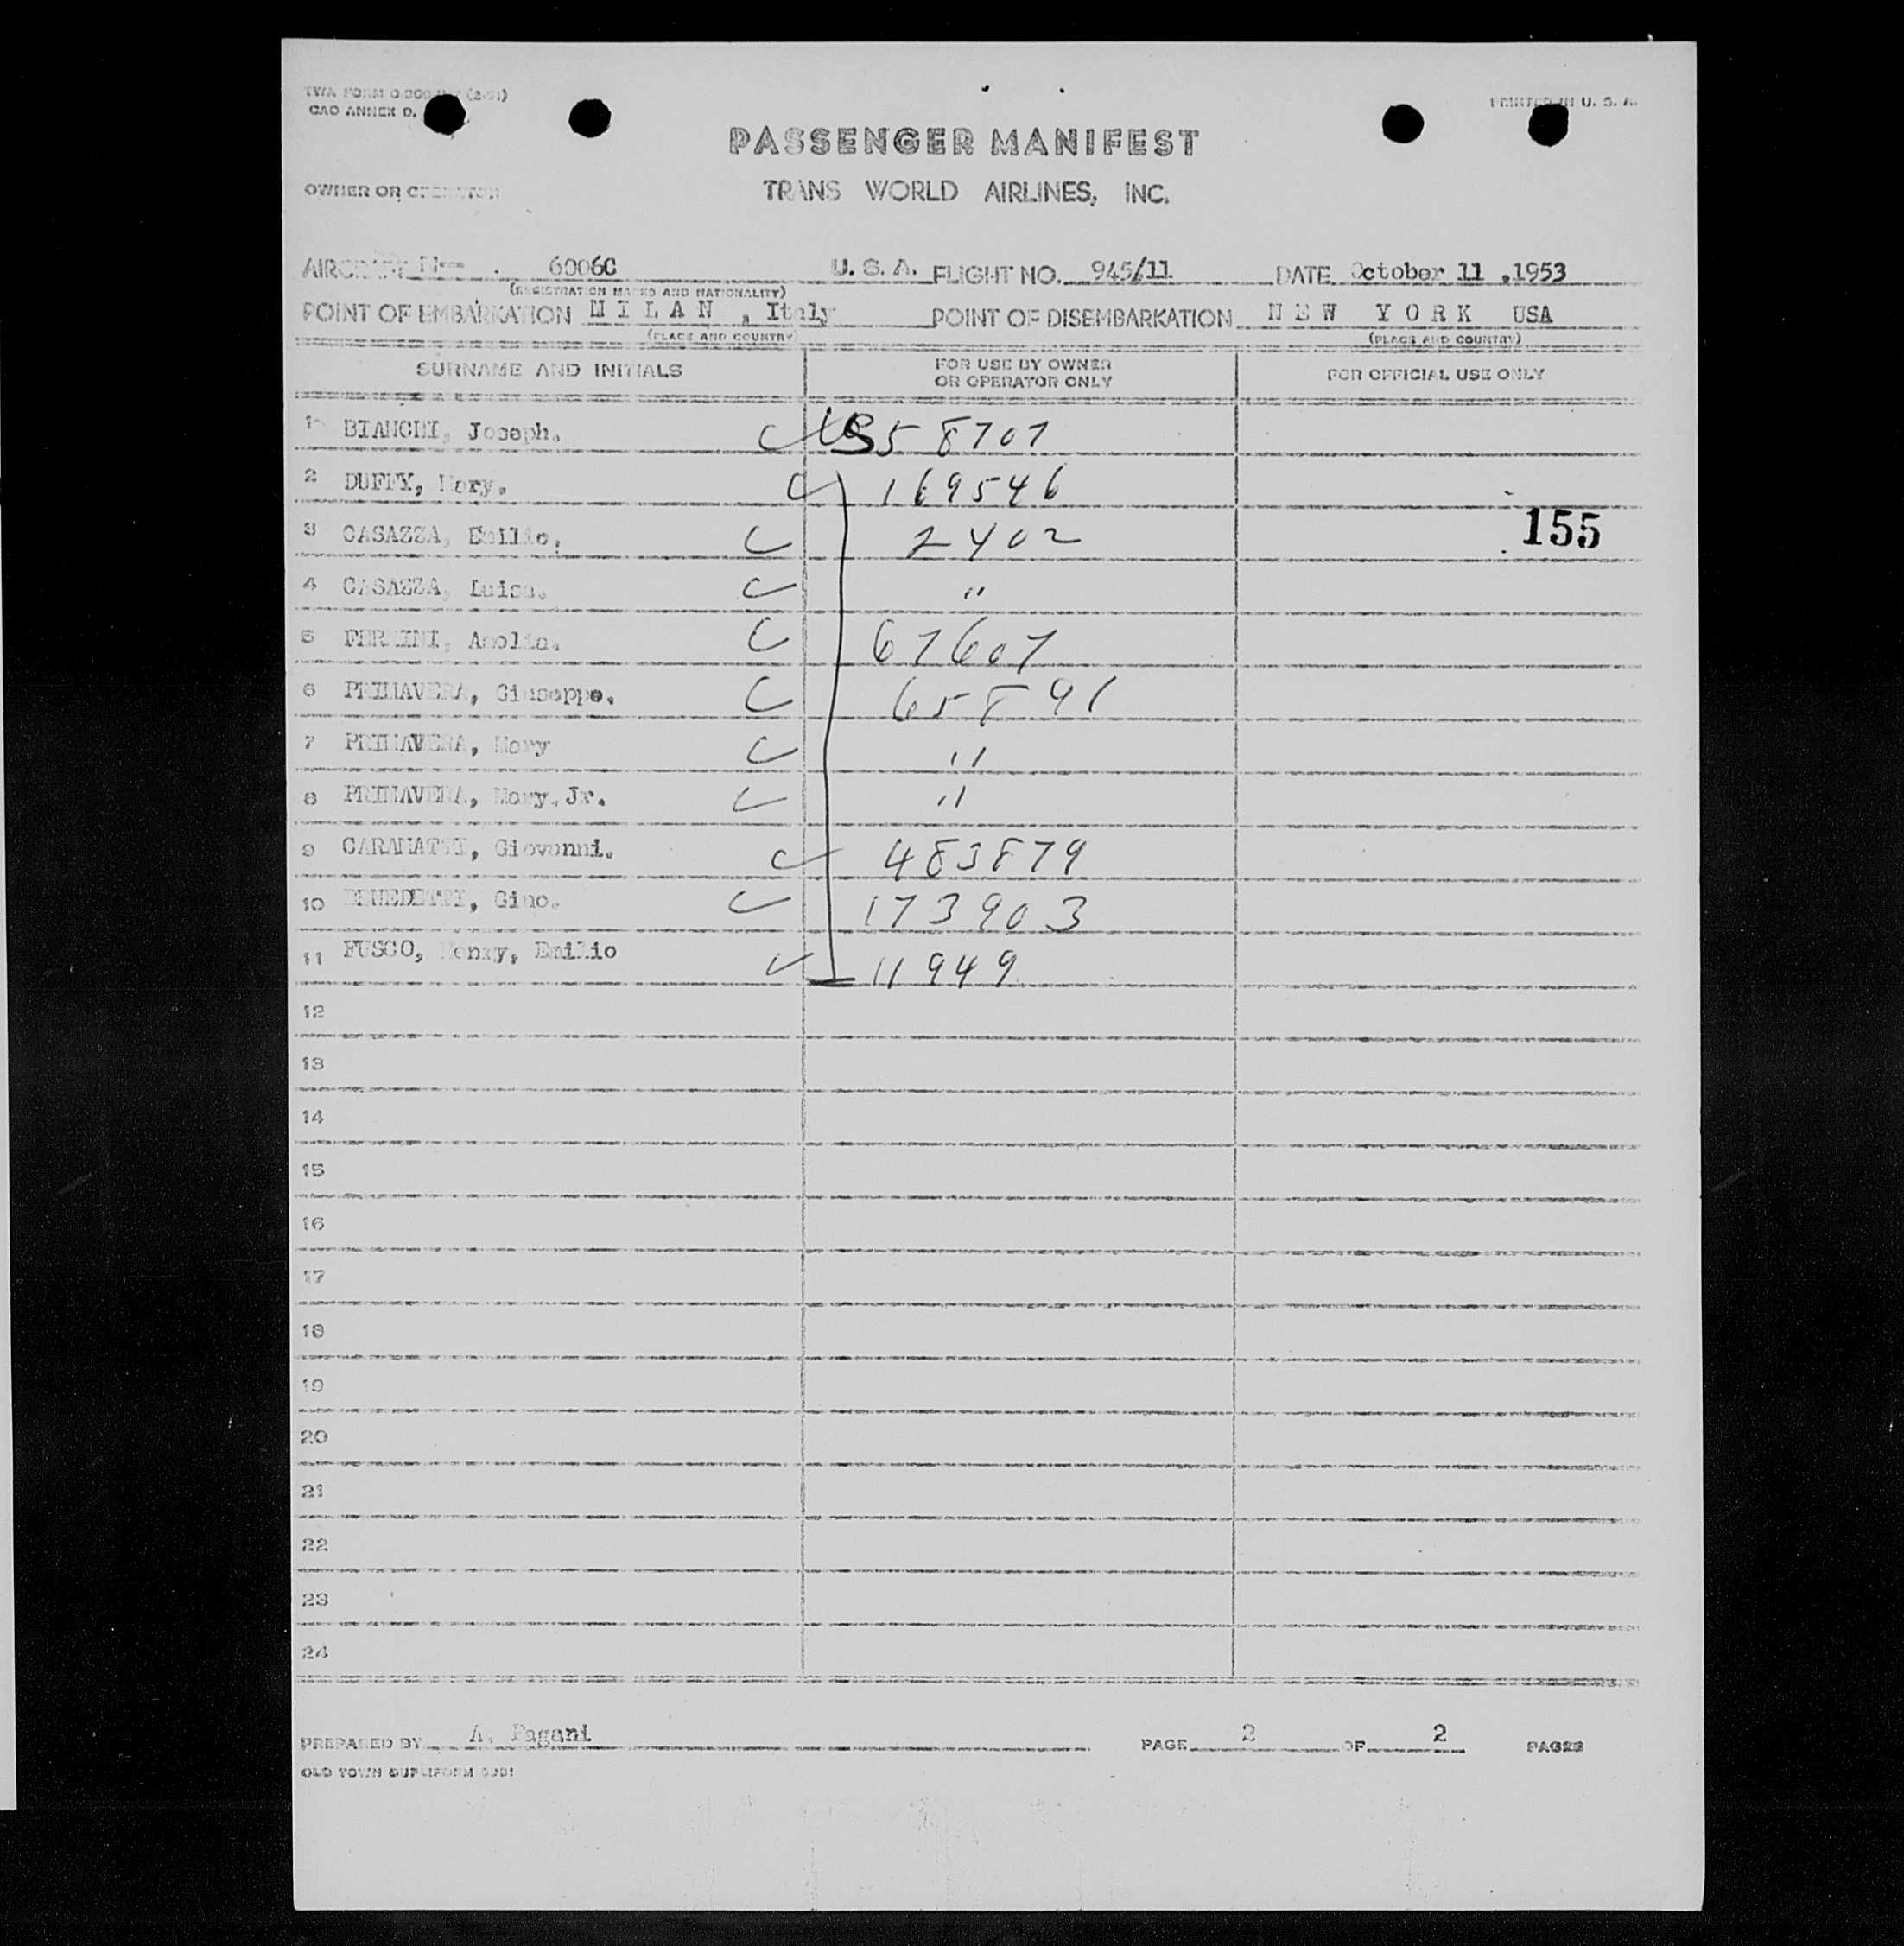 TWA FORM
CAO ANNEX D.
PRINTED IN U. S. A.
PASSENGER MANIFEST
OWNER OR OPERATOR
TRANS WORLD AIRLINES, INC.
AIRCRAFT N-- . 6006C U. S. A. FLIGHT NO. 945/11 DATE October 11 ,1953
(REGISTRATION MARKS AND NATIONALITY)
POINT OF EMBARKATION M I L A N , Italy POINT OF DISEMBARKATION N E W Y O R K USA
(PLACE AND COUNTRY) (PLACE AND COUNTRY)
SURNAME AND INITIALS FOR USE BY OWNER OR OPERATOR ONLY FOR OFFICIAL USE ONLY
1 BIANCHI, Joseph. US 58707
2 DUFFY, Mary. 169546
3 CASAZZA, Emilio. 2402 155
4 CASAZZA, Luisa. "
5 Amelia. 67607
6 PRIMAVERA, Giuseppe. 65891
7 PRIMAVERA, Mary "
8 PRIMAVERA, Mary, Jr. "
9 Giovanni. 483879
10 BENEDETTI, Gino. 173903
11 FUSCO, Henry, Emilio 11949
12
13
14
15
16
17
18
19
20
21
22
23
24
PREPARED BY A. Pagani PAGE 2 OF 2 PAGES
OLD TOWN DUPLIFORM